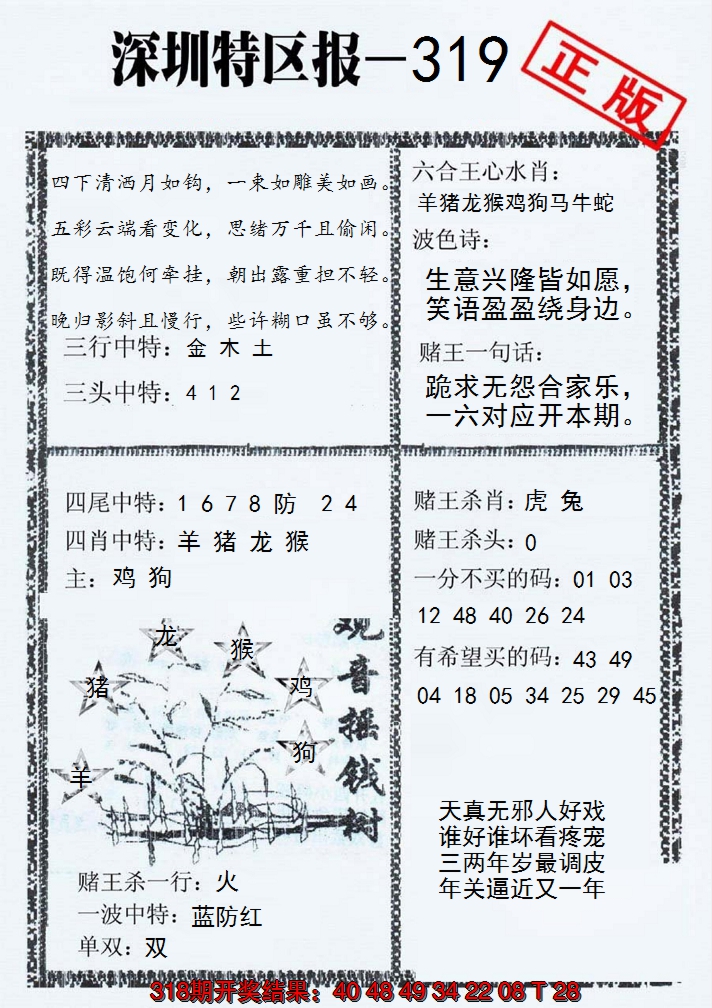 深圳特区报—319
正版
四下清洒月如钩，一束如雕美如画。
五彩云端看变化，思绪万千且偷闲。
既得温饱何牵挂，朝出露重担不轻。
晚归影斜且慢行，些许糊口虽不够。
三行中特：金 木 土
三头中特：4 1 2
六合王心水肖：
羊猪龙猴鸡狗马牛蛇
波色诗：
生意兴隆皆如愿，
笑语盈盈绕身边。
赌王一句话：
跪求无怨合家乐，
一六对应开本期。
四尾中特：1 6 7 8 防 2 4
四肖中特：羊 猪 龙 猴
主：鸡 狗
赌王杀肖：虎 兔
赌王杀头：0
一分不买的码：01 03
12 48 40 26 24
有希望买的码：43 49
04 18 05 34 25 29 45
龙
猴
猪
鸡
狗
羊
观音摇钱树
天真无邪人好戏
谁好谁坏看疼宠
三两年岁最调皮
年关逼近又一年
赌王杀一行：火
一波中特：蓝防红
单双：双
318期开奖结果：40 48 49 34 22 08 T 28